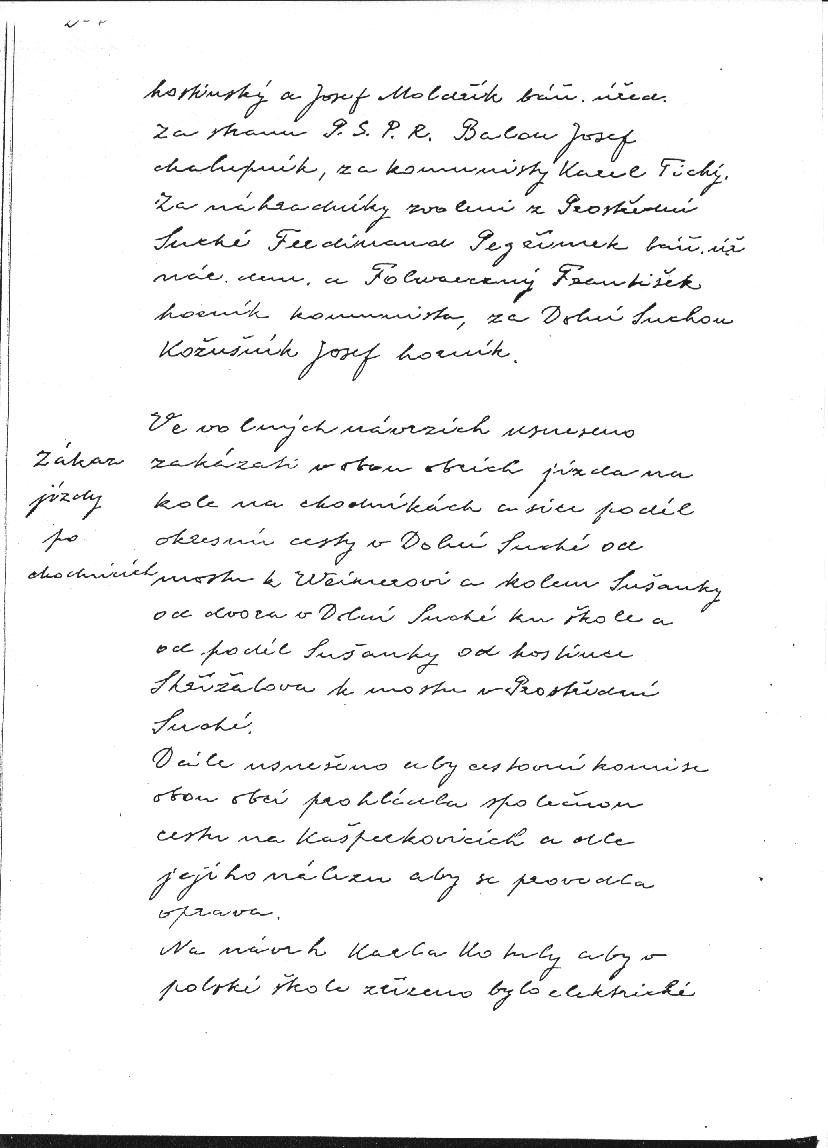 hostinský a Josef Moldřík báň. úřed.
Za stranu P. S. P. R. Balon Josef
chalupník, za komunisty Karel Tichý.
Za náhradníky zvoleni z Prostřední
Suché Ferdinand Pegřimek báň. úř
nár. dem. a Folwarczný František
horník komunista, za Dolní Suchou
Kožušník Josef horník.
Ve volných návrzích usneseno
Zákaz
jízdy
po
chodnících
zakázati v obou obcích jízda na
kole na chodníkách a sice podél
okresní cesty v Dolní Suché od
mostu k Weimerovi a kolem Sušanky
od dvora v Dolní Suché ku škole a
od podél Sušanky od hostince
Skřižalova k mostu v Prostřední
Suché.
Dále usnešeno aby cestovní komise
obou obcí prohlédla společnou
cestu na Kašperkovicích a dle
jejího nálezu aby se provedla
oprava.
Na návrh Karla Kotuly aby v
polské škole zřízeno bylo elektrické